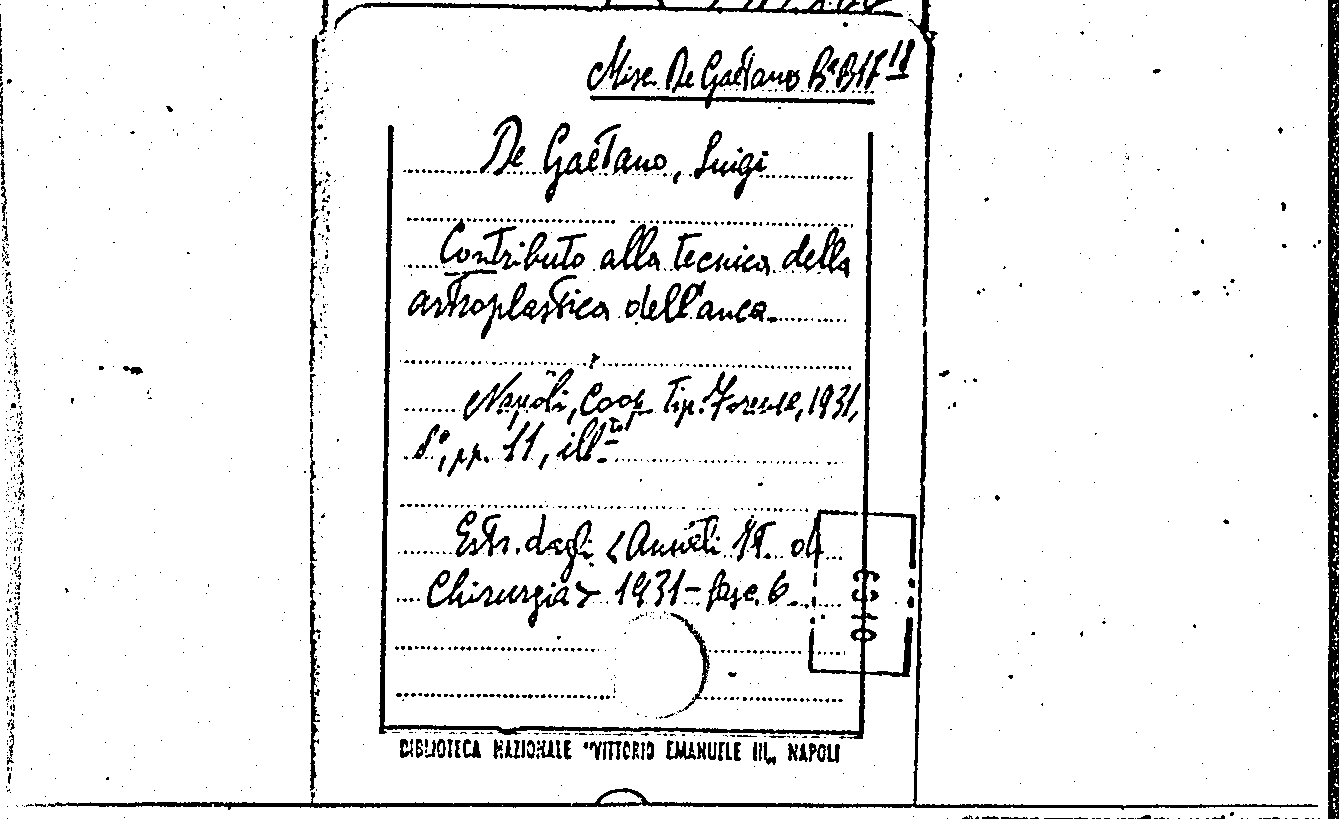 Misc. De Gaetano Bª B17 18
De Gaetano, Luigi
Contributo alla tecnica della
artroplastica dell'anca.
Napoli, Coop. Tip. Forense, 1931,
8°, pp. 11, ill.to
Estr. dagli < Annali It. di
Chirurgia > 1931 - fasc. 6.
BIBLIOTECA NAZIONALE "VITTORIO EMANUELE III„ NAPOLI